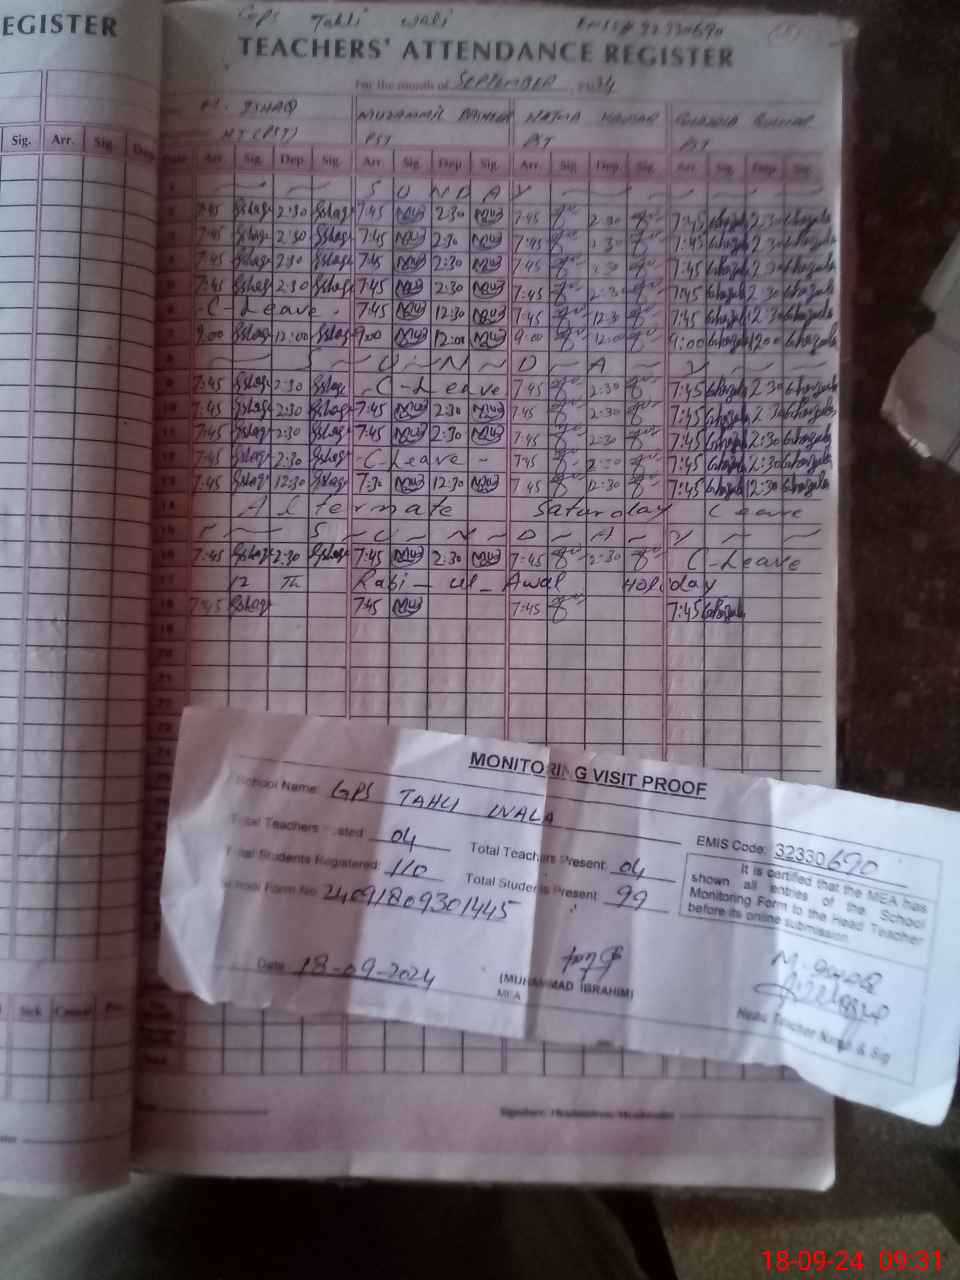 EGISTER
GPS Tahli wali EMIS# 32330690
TEACHERS' ATTENDANCE REGISTER
For the month of SEPTEMBER 2024
M. ISHAQ MUZAMMIL
HT (PST) PST PST PST
Sig. Arr. Sig. Dep
Date Arr. Sig. Dep. Sig. Arr. Sig. Dep. Sig. Arr. Sig. Dep. Sig. Arr. Sig. Dep. Sig.
1 S U N D A Y
2 7:45 Ishaq 2:30 Ishaq 7:45 MUZ 2:30 MUZ 7:45 2:30 7:45 Ghazala 2:30 Ghazala
3 7:45 Ishaq 2:30 Ishaq 7:45 MUZ 2:30 MUZ 7:45 2:30 7:45 Ghazala 2:30 Ghazala
4 7:45 Ishaq 2:30 Ishaq 7:45 MUZ 2:30 MUZ 7:45 2:30 7:45 Ghazala 2:30 Ghazala
5 7:45 Ishaq 2:30 Ishaq 7:45 MUZ 2:30 MUZ 7:45 2:30 7:45 Ghazala 2:30 Ghazala
6 - C - Leave - 7:45 MUZ 12:30 MUZ 7:45 12:30 7:45 Ghazala 12:30 Ghazala
7 9:00 Ishaq 12:00 Ishaq 9:00 MUZ 12:00 MUZ 9:00 12:00 9:00 Ghazala 12:00 Ghazala
8 S U N D A Y
9 7:45 Ishaq 2:30 Ishaq - C - Leave 7:45 2:30 7:45 Ghazala 2:30 Ghazala
10 7:45 Ishaq 2:30 Ishaq 7:45 MUZ 2:30 MUZ 7:45 2:30 7:45 Ghazala 2:30 Ghazala
11 7:45 Ishaq 2:30 Ishaq 7:45 MUZ 2:30 MUZ 7:45 2:30 7:45 Ghazala 2:30 Ghazala
12 7:45 Ishaq 2:30 Ishaq - C - Leave - 7:45 2:30 7:45 Ghazala 2:30 Ghazala
13 7:45 Ishaq 12:30 Ishaq 7:30 MUZ 12:30 MUZ 7:45 12:30 7:45 Ghazala 12:30 Ghazala
14 Alternate Saturday Leave
15 S U N D A Y
16 7:45 Ishaq 2:30 Ishaq 7:45 MUZ 2:30 MUZ 7:45 2:30 C - Leave
17 12 Th Rabi - ul - Awal Holiday
18 7:45 Ishaq 7:45 MUZ 7:45 7:45 Ghazala
19
20
21
22
23
24
MONITORING VISIT PROOF
School Name: GPS TAHLI WALA
EMIS Code: 32330690
Total Teachers 04 Total Teachers Present: 04
Total Students Registered: 110 Total Students Present: 99
School Form No. 24091809301445
It is certified that the MEA has
shown all entries of the School
Monitoring Form to the Head Teacher
before its online submission.
Date: 18-09-2024
(MUHAMMAD IBRAHIM)
MEA
M. ISHAQ
Head Teacher Name & Sig
Sick Casual Pri.
18-09-24 09:31